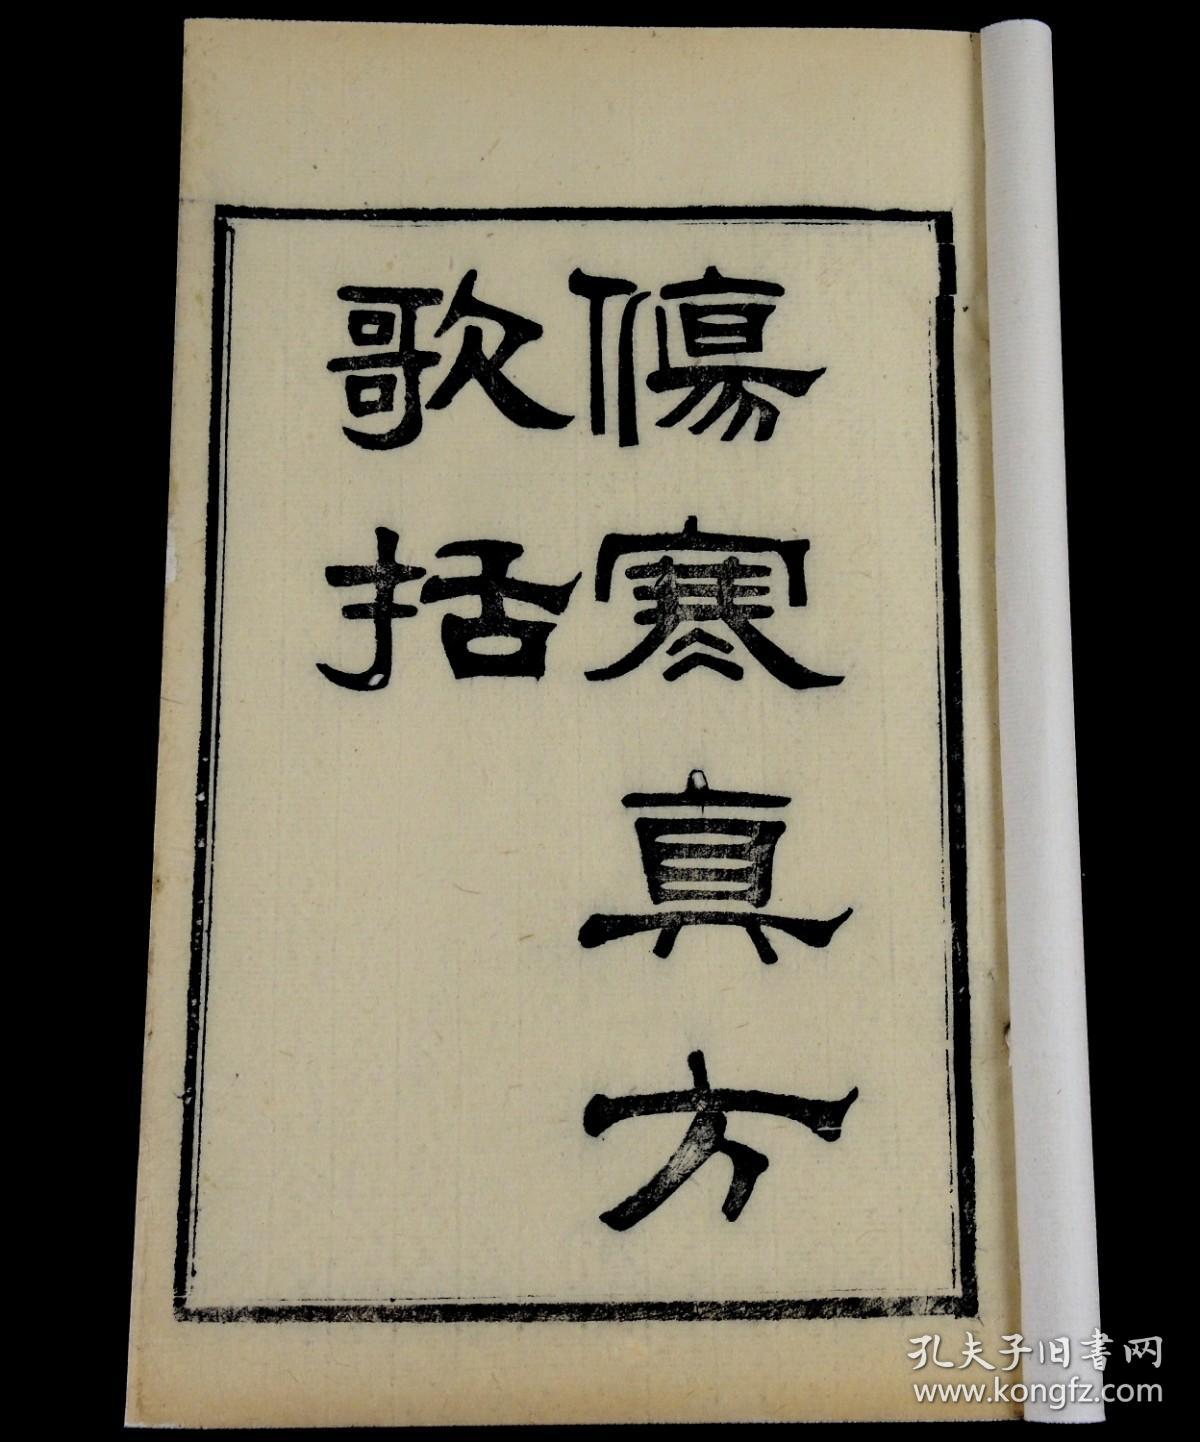 傷寒真方
歌括
孔夫子旧書网
www.kongfz.com